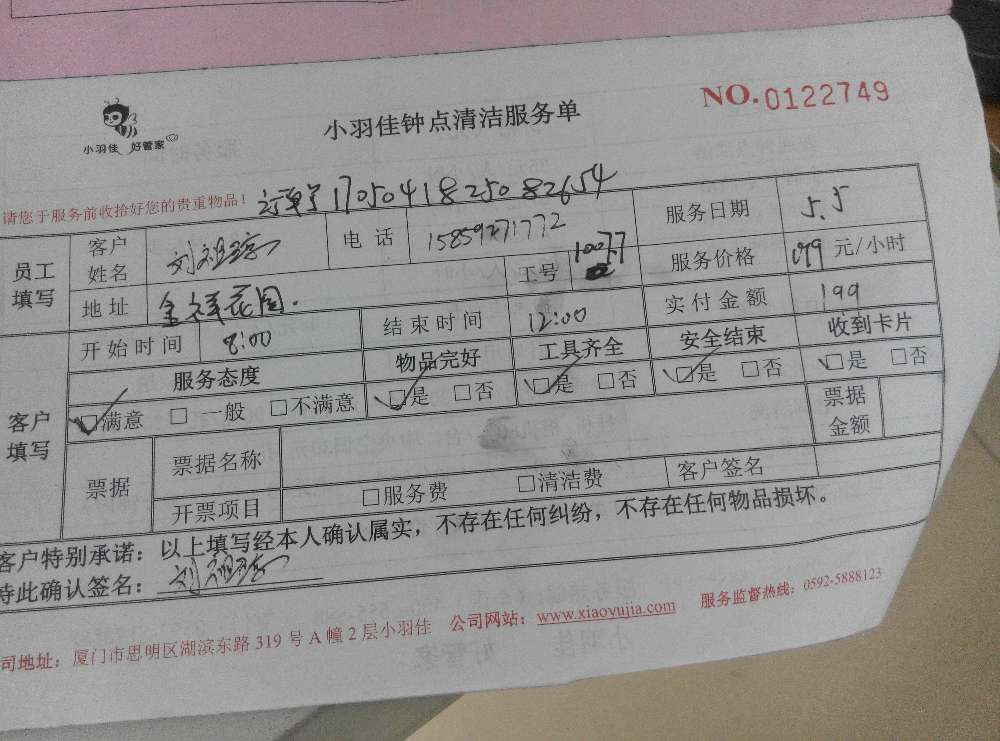 NO.0122749
小羽佳 好管家
小羽佳钟点清洁服务单
请您于服务前收拾好您的贵重物品! 订单号170504182508 2654
员工填写 客户姓名 刘祖 电话 15859271772 服务日期 5.5
地址 金祥花园. 工号 10077 服务价格 199 元/小时
开始时间 8:00 结束时间 12:00 实付金额 199
客户填写 服务态度 物品完好 工具齐全 安全结束 收到卡片
☑满意 □一般 □不满意 ☑是 □否 ☑是 □否 ☑是 □否 ☑是 □否
票据 票据名称 票据金额
开票项目 □服务费 □清洁费 客户签名
客户特别承诺:以上填写经本人确认属实,不存在任何纠纷,不存在任何物品损坏。
特此确认签名: 刘祖
司地址:厦门市思明区湖滨东路 319 号 A 幢 2 层小羽佳 公司网站:www.xiaoyujia.com 服务监督热线:0592-5888123